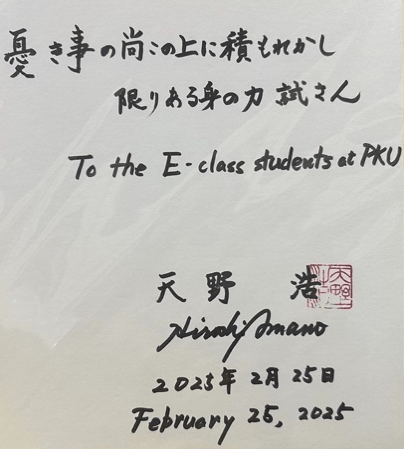 憂き事の尚この上に積もれかし
限りある身の力 試さん
To the E-class students at PKU
天野 浩
Hiroshi Amano
2025年 2月 25日
February 25, 2025